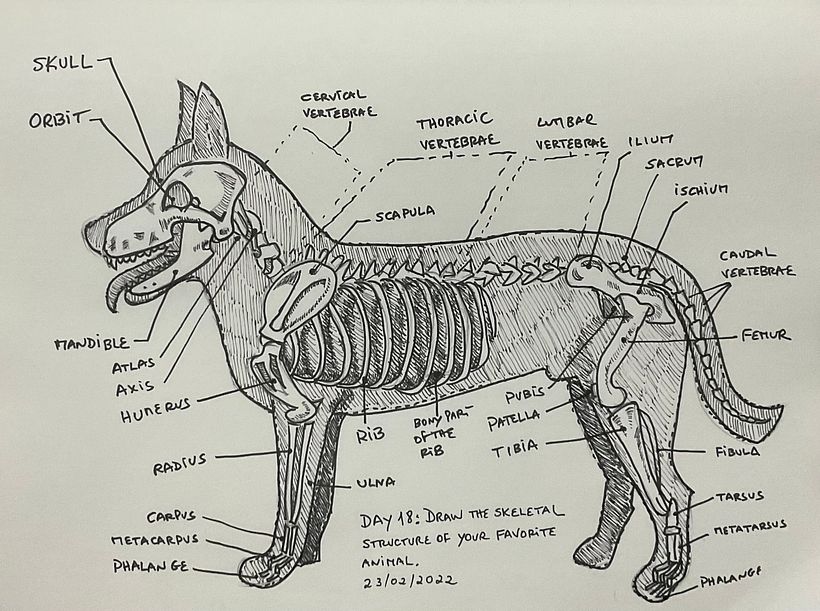 SKULL
ORBIT
CERVICAL
VERTEBRAE
THORACIC
VERTEBRAE
LUMBAR
VERTEBRAE
ILIUM
SACRUM
ISCHIUM
SCAPULA
CAUDAL
VERTEBRAE
MANDIBLE
ATLAS
AXIS
HUMERUS
FEMUR
PUBIS
PATELLA
TIBIA
RIB
BONY PART
OF THE
RIB
RADIUS
ULNA
FIBULA
TARSUS
METATARSUS
PHALANGE
CARPUS
METACARPUS
PHALANGE
DAY 18: DRAW THE SKELETAL
STRUCTURE OF YOUR FAVORITE
ANIMAL.
23/02/2022